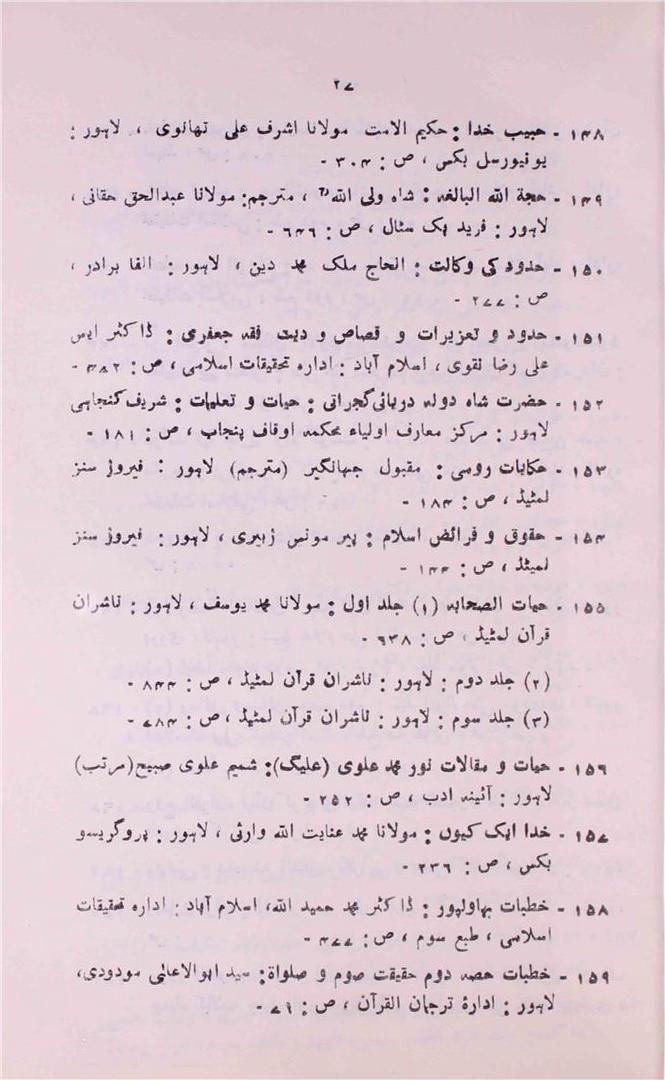 ۲۷
۱۴۸ - حبیب خدا : حکیم الامت مولانا اشرف علی تھانوی ، لاہور :
یونیورسل بکس ، ص : ۳۰۴ -
۱۴۹ - حجة الله البالغه : شاہ ولی اللہ ؒ ، مترجم: مولانا عبدالحق حقانی ،
لاہور : فرید بک سٹال ، ص : ۶۴۶ -
۱۵۰ - حدود کی وکالت : الحاج ملک محمد دین ، لاہور : الفا برادر ،
ص : ۲۷۷ -
۱۵۱ - حدود و تعزیرات و قصاص و دیت فقہ جعفری : ڈاکٹر ایس
علی رضا نقوی ، اسلام آباد : ادارہ تحقیقات اسلامی ، ص : ۴۸۲ -
۱۵۲ - حضرت شاہ دولہ دریائی گجراتی : حیات و تعلیمات : شریف کنجاہی
لاہور : مرکز معارف اولیاء محکمہ اوقاف پنجاب ، ص : ۱۸۱ -
۱۵۳ - حکایات رومی : مقبول جہانگیر (مترجم) لاہور : فیروز سنز
لمٹیڈ ، ص : ۱۸۴ -
۱۵۴ - حقوق و فرائض اسلام : پیر مونس زبیری ، لاہور : فیروز سنز
لمیٹڈ ، ص : ۱۴۴ -
۱۵۵ - حیات الصحابہ (۱) جلد اول : مولانا محمد یوسف ، لاہور : ناشران
قرآن لمٹیڈ ، ص : ۶۳۸ -
(۲) جلد دوم : لاہور : ناشران قرآن لمٹیڈ ، ص : ۸۴۴ -
(۳) جلد سوم : لاہور : ناشران قرآن لمٹیڈ ، ص : ۷۸۴ -
۱۵۶ - حیات و مقالات نور محمد علوی (علیگ): شمیم علوی صبیح(مرتب)
لاہور : آئینہ ادب ، ص : ۲۵۲ -
۱۵۷ - خدا ایک کیوں : مولانا محمد عنایت اللہ وارثی ، لاہور : پروگریسو
بکس ، ص : ۲۳۶ -
۱۵۸ - خطبات بہاولپور : ڈاکٹر محمد حمید اللہ، اسلام آباد : ادارہ تحقیقات
اسلامی ، طبع سوم ، ص : ۴۷۷ -
۱۵۹ - خطبات حصہ دوم حقیقت صوم و صلواة: سید ابوالاعالٰی مودودی،
لاہور : ادارۂ ترجمان القرآن ، ص : ۷۹ -